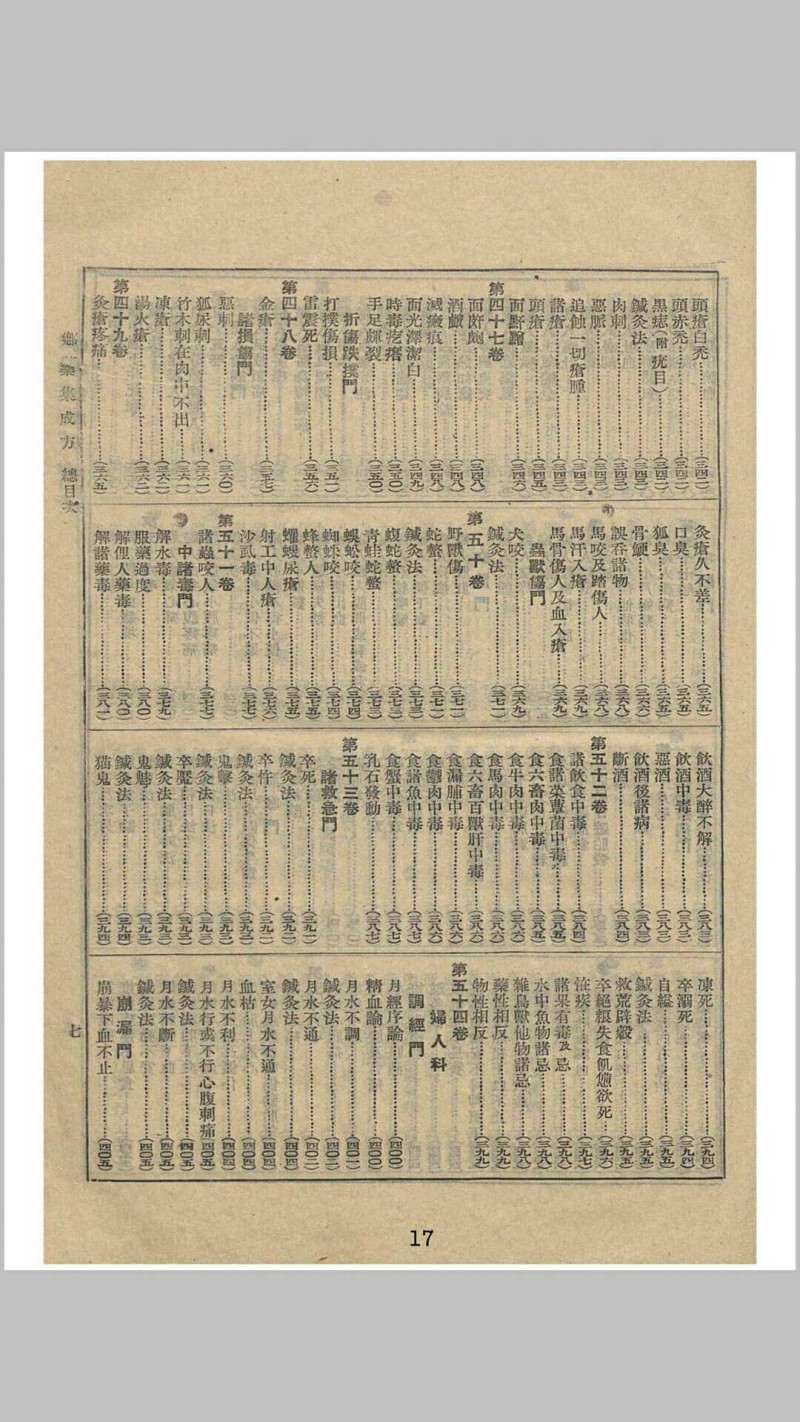 頭瘡白禿……(三四二)
頭赤禿……(三四二)
黑痣(附疣目)……(三四二)
鍼灸法……(三四三)
肉刺……(三四三)
惡脈……(三四三)
追蝕一切瘡腫……(三四三)
諸瘡……(三四三)
頭瘡……(三四五)
面䵟䵳……(三四六)
第四十七卷
面皰……(三四八)
酒齇……(三四八)
滅瘢痕……(三四八)
面光澤潔白……(三四九)
時毒疙瘩……(三五〇)
手足皹裂……(三五〇)
折傷跌撲門
打撲傷損……(三五二)
雷震死……(三五六)
第四十八卷
金瘡……(三五七)
諸損傷門
惡刺……(三六〇)
狐尿刺……(三六一)
竹木刺在肉中不出……(三六一)
凍瘡……(三六二)
湯火瘡……(三六二)
第四十九卷
灸瘡疼痛……(三六五)
灸瘡久不差……(三六五)
口臭……(三六五)
狐臭……(三六五)
骨鯁……(三六六)
誤吞諸物……(三六七)
馬咬及踏傷人……(三六八)
馬汗入瘡……(三六九)
馬骨傷人及血入瘡……(三六九)
蟲獸傷門
犬咬……(三六九)
鍼灸法……(三七一)
第五十卷
野獸傷……(三七二)
蛇螫……(三七二)
鍼灸法……(三七三)
蝮蛇螫……(三七三)
青蛙蛇螫……(三七三)
蜈蚣咬……(三七三)
蜘蛛咬……(三七四)
蜂螫人……(三七五)
蠼螋尿瘡……(三七五)
射工中人瘡……(三七六)
沙虱毒……(三七七)
第五十一卷
諸蟲咬人……(三七七)
中諸毒門
解水毒……(三七九)
服藥過度……(三八〇)
解俚人藥毒……(三八〇)
解諸藥毒……(三八一)
飲酒大醉不解……(三八三)
飲酒中毒……(三八三)
惡酒……(三八三)
飲酒後諸病……(三八三)
斷酒……(三八四)
第五十二卷
諸飲食中毒……(三八四)
食諸菜蕈菌中毒……(三八五)
食六畜肉中毒……(三八五)
食牛肉中毒……(三八六)
食馬肉中毒……(三八六)
食六畜百獸肝中毒……(三八六)
食漏脯中毒……(三八六)
食鬱肉中毒……(三八六)
食諸魚中毒……(三八七)
食蟹中毒……(三八七)
乳石發動……(三八七)
第五十三卷
諸救急門
卒死……(三九二)
鍼灸法……(三九二)
卒忤……(三九二)
鍼灸法……(三九三)
鬼擊……(三九三)
鍼灸法……(三九三)
卒魘……(三九三)
鍼灸法……(三九三)
鬼魅……(三九三)
鍼灸法……(三九四)
猫鬼……(三九四)
凍死……(三九四)
卒溺死……(三九四)
自縊……(三九五)
鍼灸法……(三九五)
救荒辟穀……(三九五)
卒絕粮失食飢憊欲死……(三九六)
怪疾……(三九七)
諸果有毒及忌……(三九八)
水中魚物諸忌……(三九八)
雜鳥獸他物諸忌……(三九八)
藥性相反……(三九九)
物性相反……(三九九)
第五十四卷
婦人科
調經門
月經序論……(四〇〇)
精血論……(四〇〇)
月水不調……(四〇一)
鍼灸法……(四〇二)
月水不通……(四〇二)
鍼灸法……(四〇四)
室女月水不通……(四〇四)
血枯……(四〇四)
月水不利……(四〇四)
月水行或不行心腹刺痛……(四〇五)
鍼灸法……(四〇五)
月水不斷……(四〇五)
鍼灸法……(四〇五)
崩漏門
崩暴下血不止……(四〇五)
鄉藥集成方 總目次
七
17